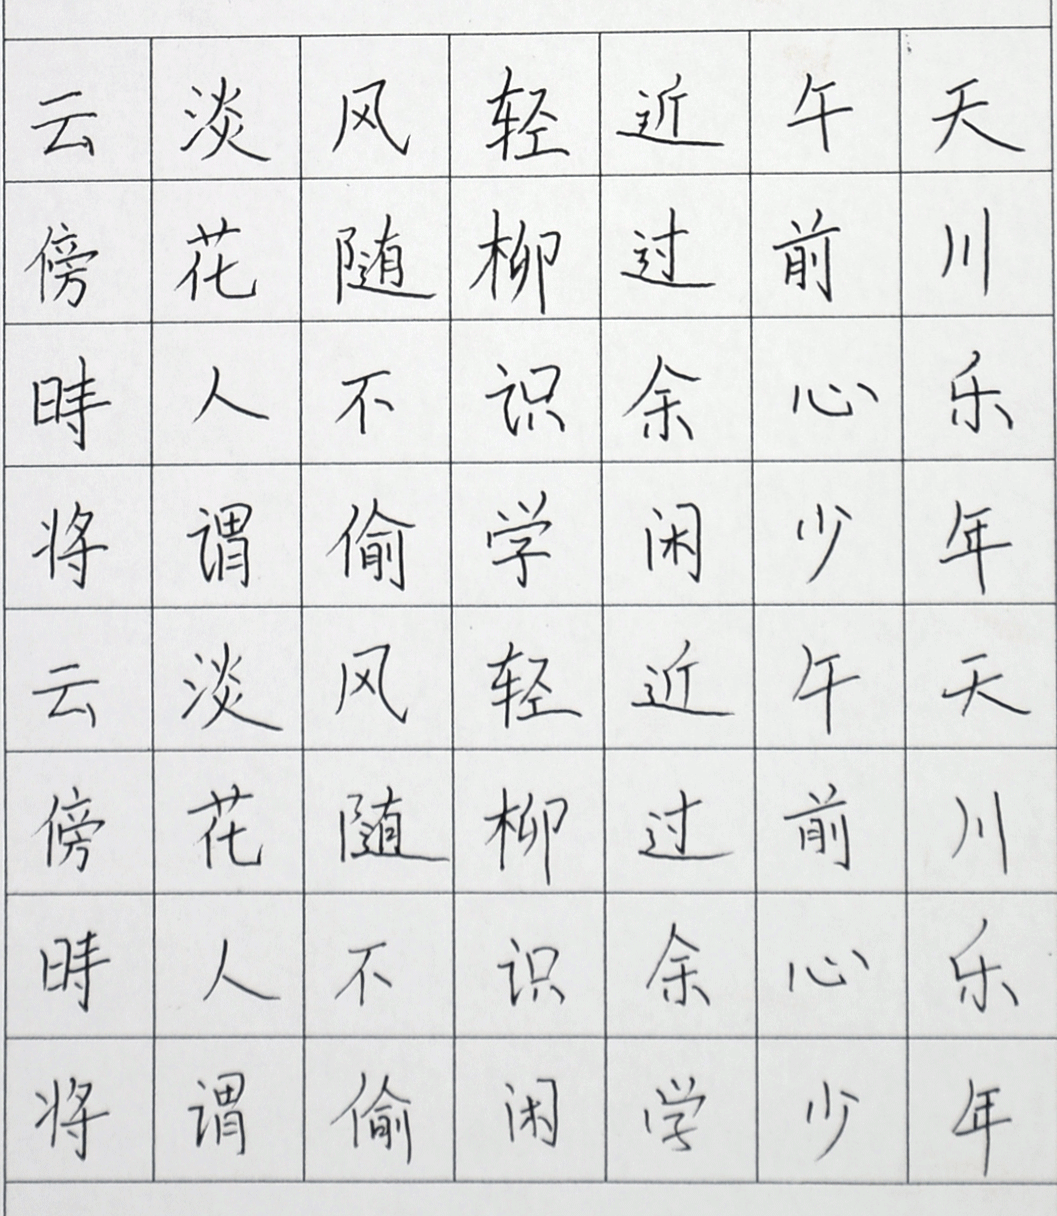 云淡风轻近午天
傍花随柳过前川
時人不识余心乐
将谓偷学闲少年
云淡风轻近午天
傍花随柳过前川
時人不识余心乐
将谓偷闲学少年